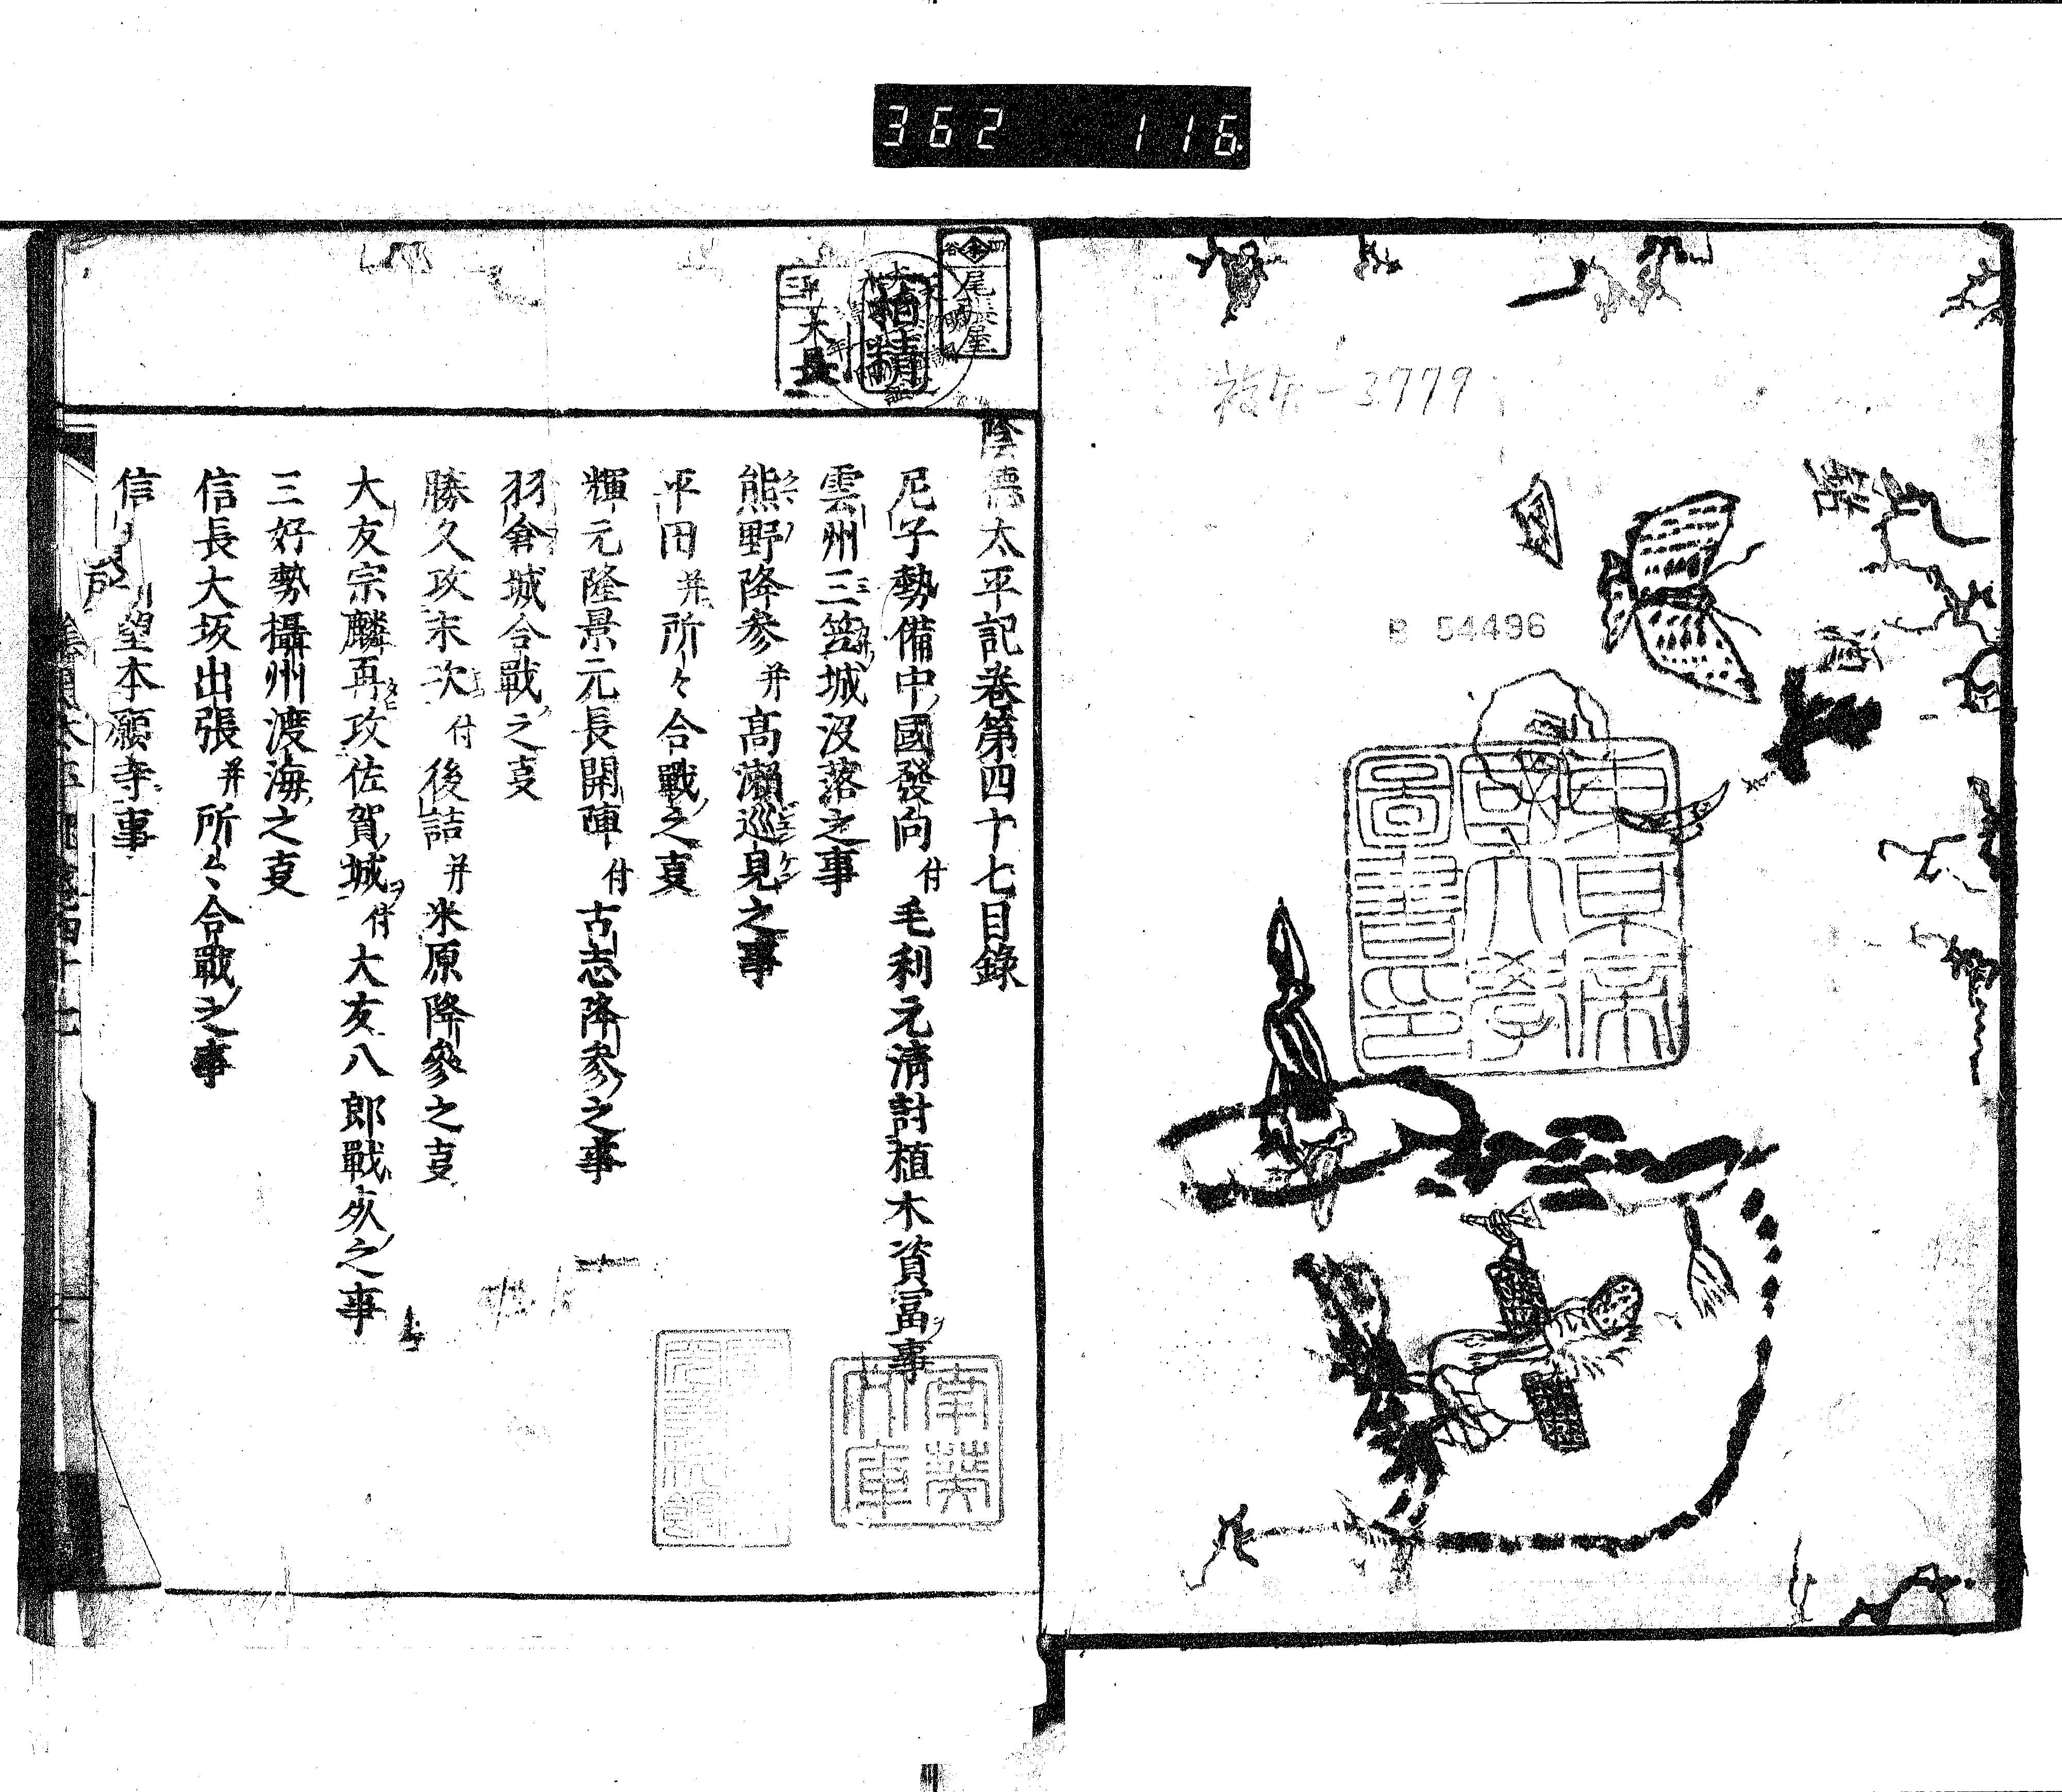 362 116
3779
B 54496
東京帝國大學圖書印
尾張屋
南葵文庫
陰德太平記卷第四十七目錄
尼子勢備中國發向付毛利元清討植木資富事
雲州三笠城没落之事
熊野降参并高瀬巡見之事
平田并所々合戰之叓
輝元隆景元長開陣付古志降参之事
羽倉城合戰之叓
勝久攻末次付後詰并米原降參之叓
大友宗麟再攻佐賀城付大友八郎戰死之事
三好勢攝州渡海之叓
信長大坂出張并所々合戰之事
信長所望本願寺事